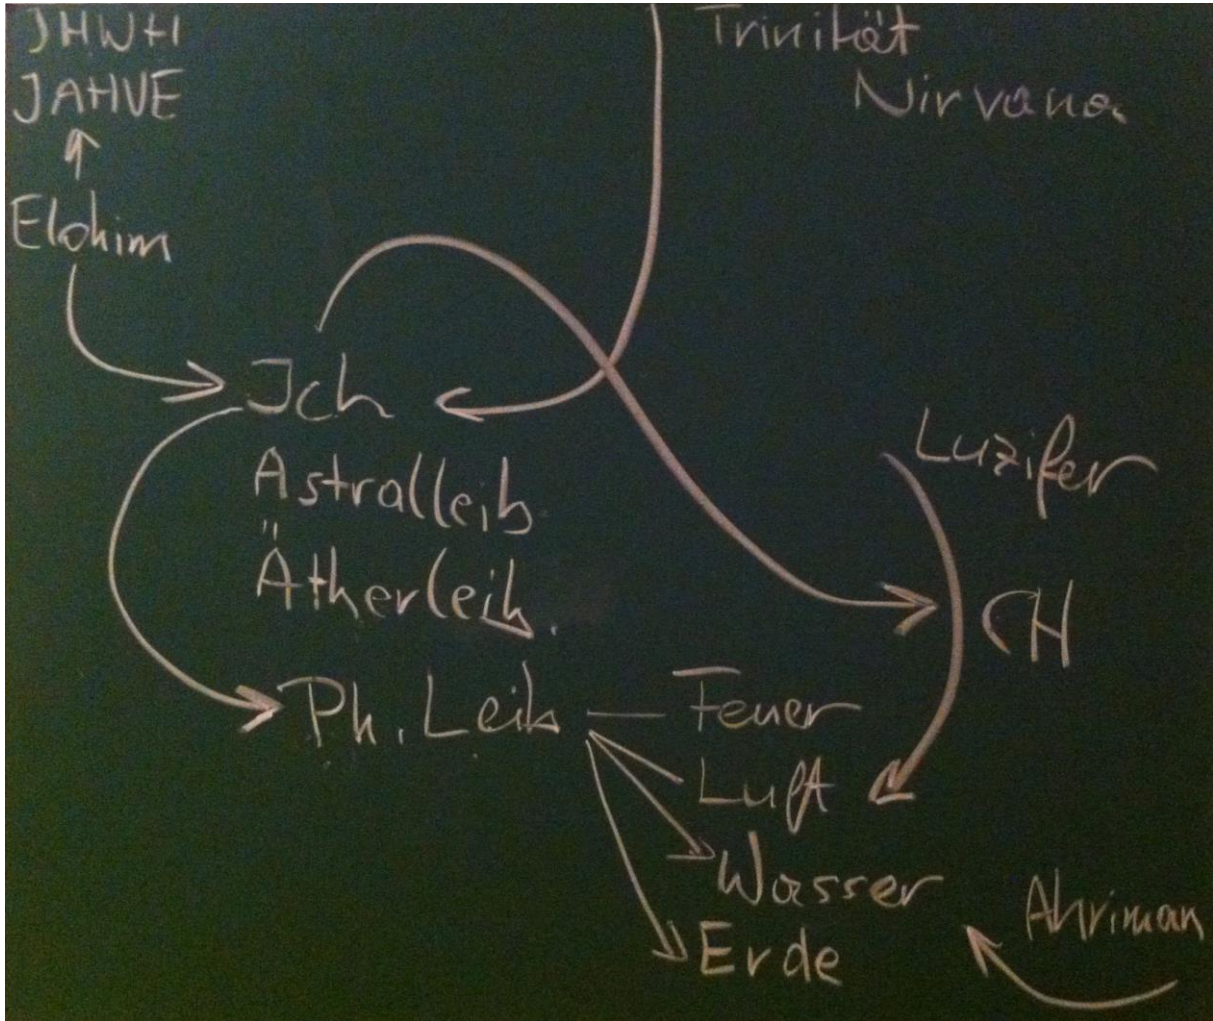 JHWH
JAHVE
Elohim
Trinität
Nirvana
Ich
Astralleib
Ätherleib.
Ph. Leib
Luzifer
CH
Feuer
Luft
Wasser
Erde
Ahriman